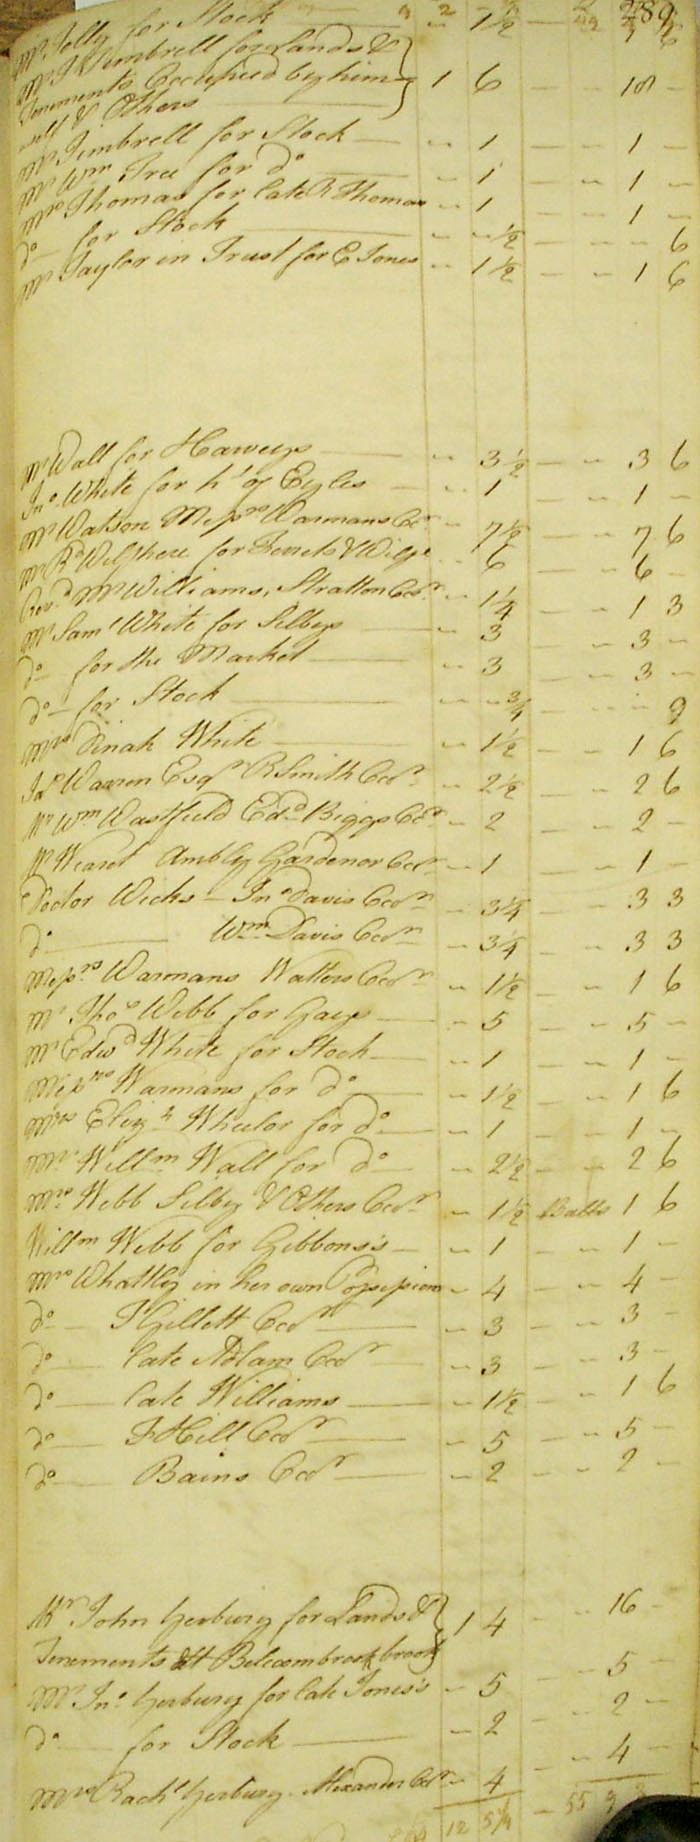 Mr Jolly for Stock - - 1½ - - 1 6
Mr J Timbrell for Lands &
Tenements Occupied by him- 1 6 - - 18 -
self & Others
Mr Timbrell for Stock - - 1 - - 1 -
Mr Wm Tree for do - - 1 - - 1 -
Mrs Thomas for late R Thomas - 1 - - 1 -
do for Stock - - ½ - - - 6
Mr Taylor in Trust for E Jones - 1½ - - 1 6
Mr Wall for Harveys - 3½ - - 3 6
Jno White for hs of Eyles - 1 - - 1 -
Mr Watson Messrs Warmans Occr - 7½ - - 7 6
Mr Rd Wilshere for - 6 - - 6 -
Revd Mr Williams, Stratton Occr - 1¼ - - 1 3
Mr Saml White for Selbys - 3 - - 3 -
do for the Market - 3 - - 3 -
do for Stock - - ¾ - - - 9
Mrs Dinah White - 1½ - - 1 6
Jas Warren Esqr R Smith Occr - 2½ - - 2 6
Mr Wm Wastfield Edd Biggs Occr - 2 - - 2 -
Mr Ambly Gardenor Occr - 1 - - 1 -
Doctor Wicks - Jno Davis Occr - 3¼ - - 3 3
do Wm Davis Occr - 3¼ - - 3 3
Messrs Warmans Watters Occr - 1½ - - 1 6
Mr Thos Webb for Gays - 5 - - 5 -
Mr Edwd White for Stock - 1 - - 1 -
Messrs Warmans for do - 1½ - - 1 6
Mrs Elizh Wheeler for do - 1 - - 1 -
Mr Willm Wall for do - 2½ - - 2 6
Mrs Webb Selby & Others Occr - 1½ 1 6
Willm Webb for Gibbons's - 1 - - 1 -
Mrs Whatley in her own Possession - 4 - - 4 -
do J Gillett Occr - 3 - - 3 -
do late Adlam Occr - 3 - - 3 -
do late Williams - 1½ - - 1 6
do J Hill Occr - 5 - - 5 -
do Bains Occr - 2 - - 2 -
Mr John Yerbury for Lands & 1 4 - - 16 -
Tenements att Belcombrook
Mr Jno Yerbury for late Jones's - 5 - - 5 -
do for Stock - 2 - - 2 -
Mrs Rachl Yerbury Alexander Occr - 4 - - 4 -
12 5¼ - 55 9